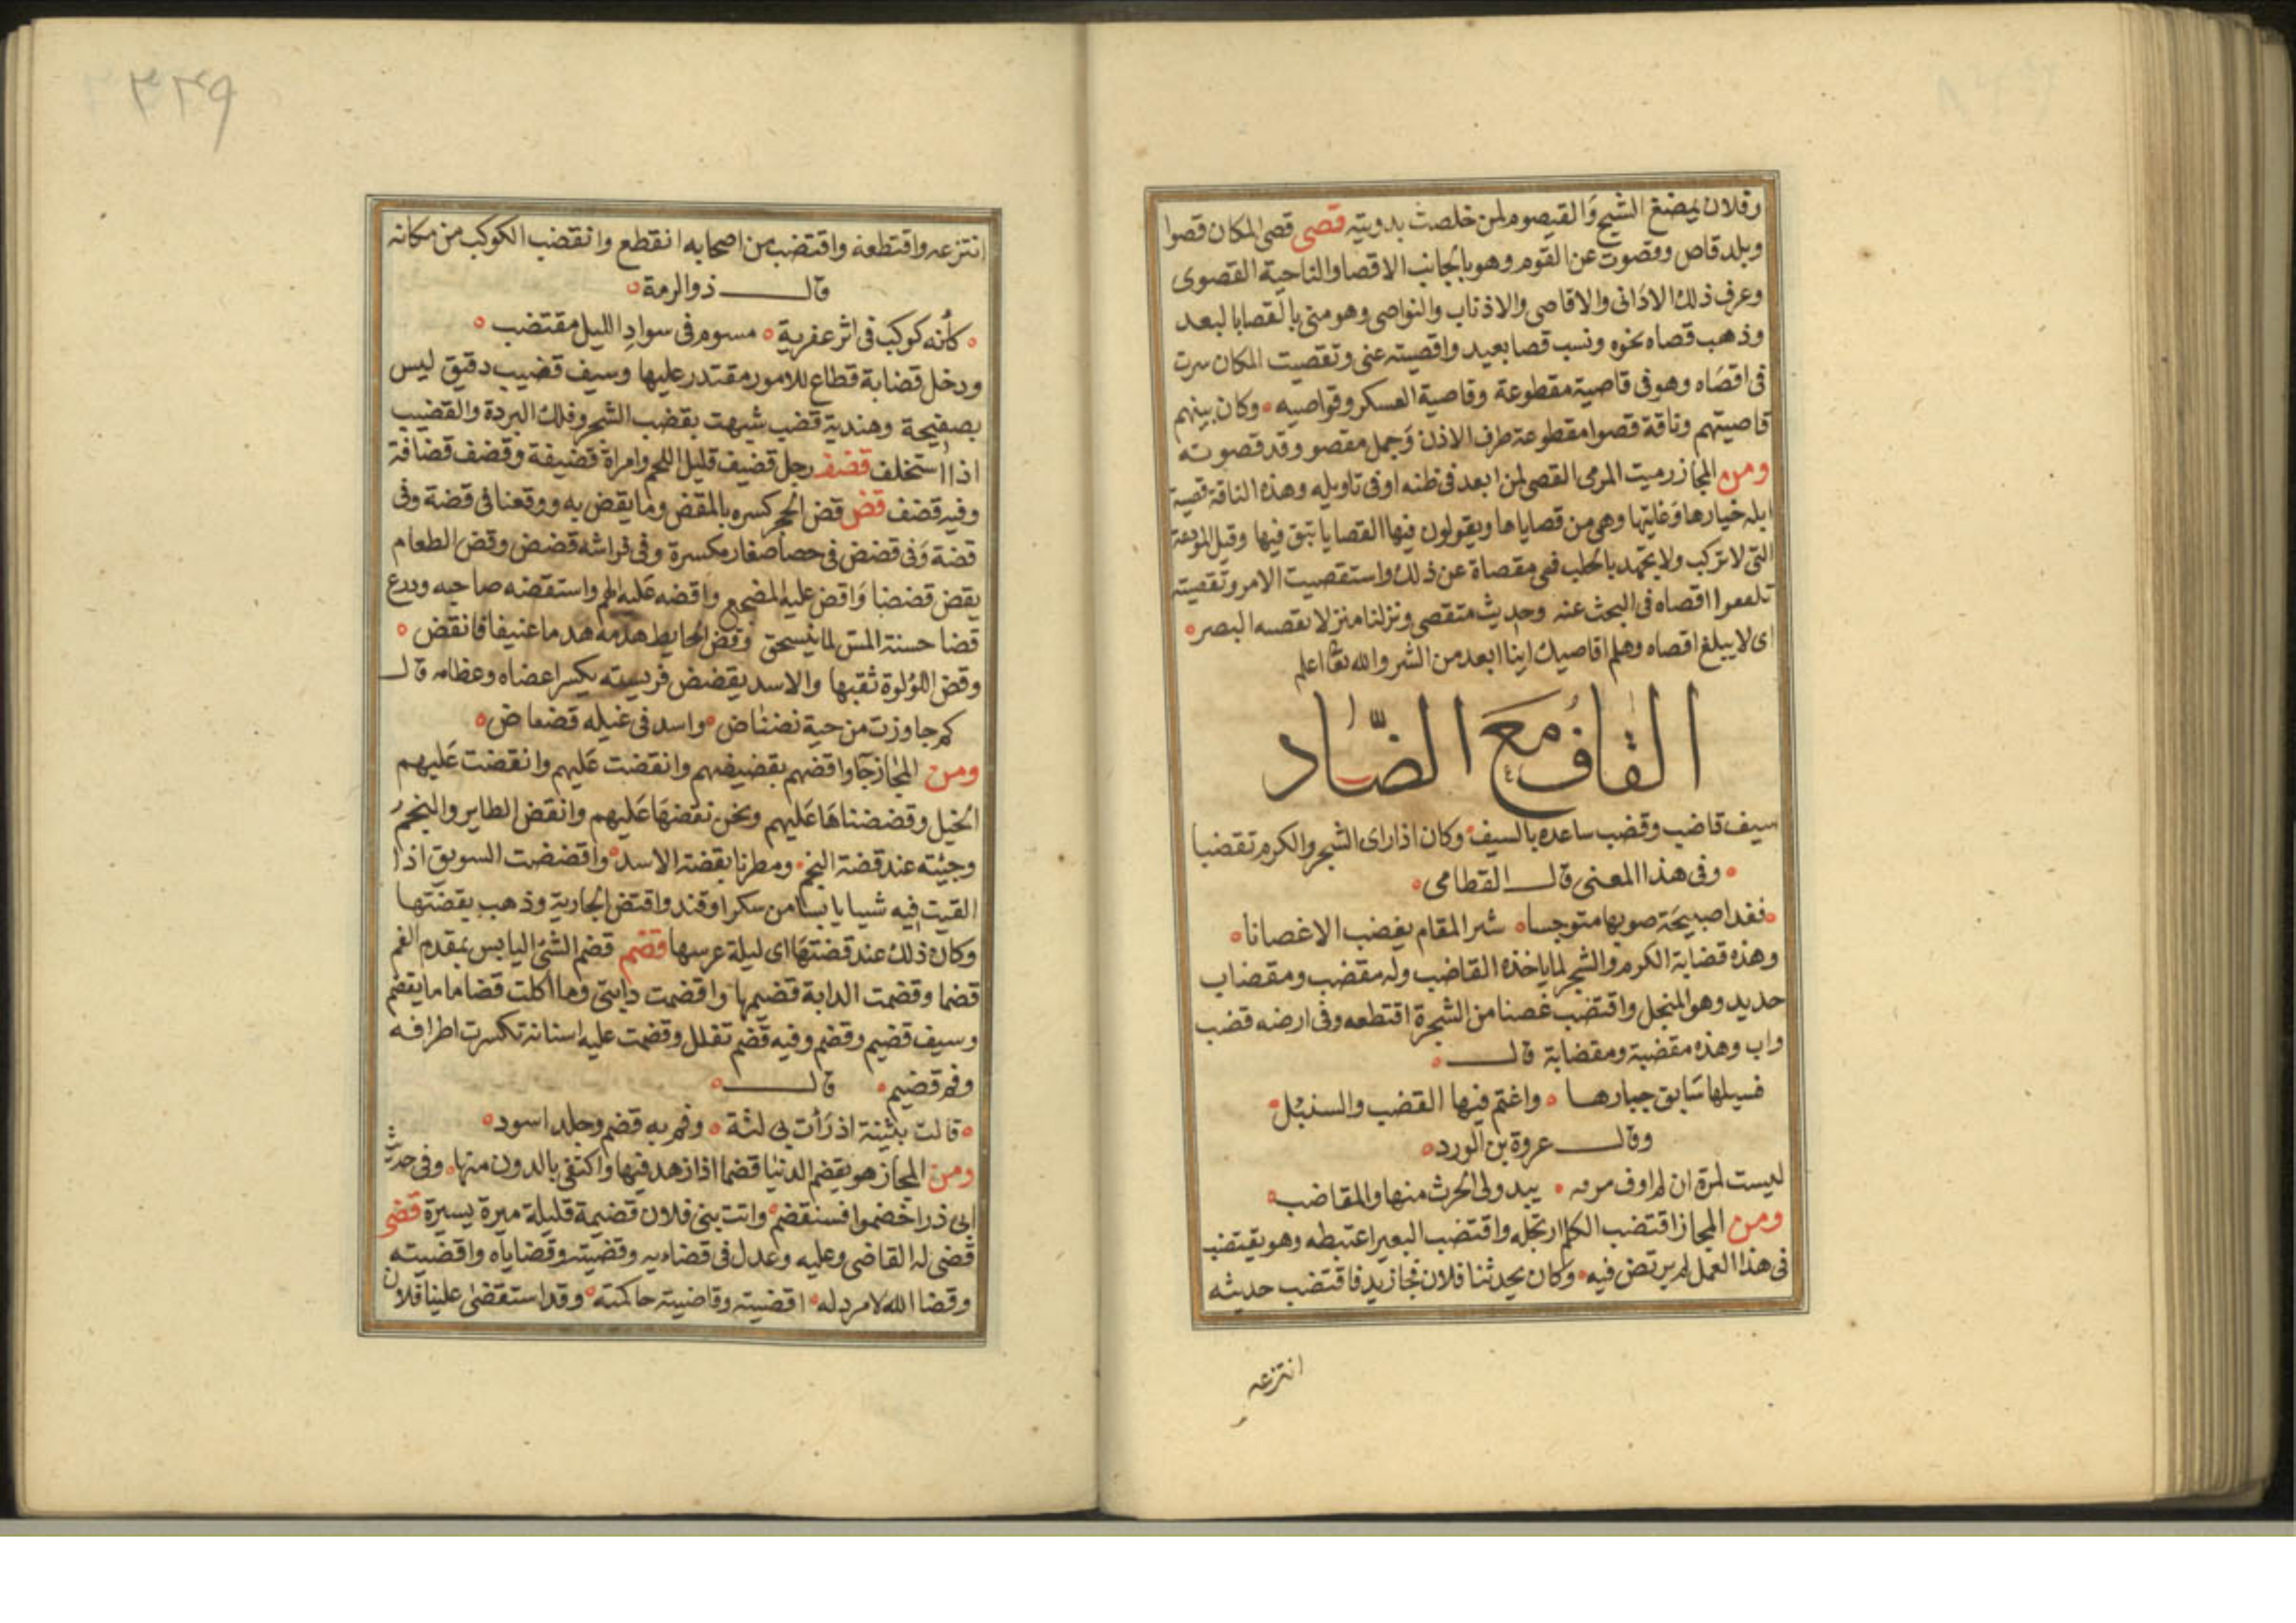 وفلان يمضغ الشيح والقيصوم لمن خلصت بدويته قصى قصى المكان قصوا
وبلد قاص وقصوت عن القوم وهو بالجانب الاقصا والناحية القصوى
وعرف ذلك الادانى والاقاصى والاذناب والنواصى وهو منى بالقصا بالبعد
وذهب قصاه نحوه ونسب قصا بعيد واقصيته عنى وتقصيت المكان سرت
فى اقصاه وهو فى قاصية مقطوعة وقاصية العسكر وقواصيه وكان بينهم
قاصيتهم وناقة قصوا مقطوعة طرف الاذن وجمل مقصو وقد قصوته
ومن المجاز رميت المرمى القصى لمن ابعد فى ظنه او فى تاويله وهذه الناقة قصية
ابله خيارها وغايتها وهى من قصاياها ويقولون فيها القصايا تبق فيها وقيل المودعة
التى لا تركب ولا تجهد بالحلب فهى مقصاة عن ذلك واستقصيت الامر وتقصيته
اقصاه فى البحث عنه وحديث متقصى ونزلنا منزلا يقصه البصر
اى لا يبلغ اقصاه وهلم اقاصيك اينا ابعد من الشر والله تعا اعلم
القاف مع الضاد
سيف قاضب وقضب ساعده بالسيف وكان اذا راى الشجر والكرم تقضيا
وفى هذا المعنى قال القطامى
فغدا صبيحة صوبها متوجسا شئز المقام يقضب الاغصانا
وهذه قضابة الكرم والشجر لما ياخذه القاضب وله مقضب ومقضاب
حديد وهو المنجل واقتضب غصنا من الشجرة اقتطعه وفى ارضه قضب
واب وهذه مقضبة ومقضابة قال
فسيلها سابق جبارها واغتم فيها القضب والسنبل
وقال عروة بن الورد
ليست لمرة ان لم اوف مرقبة يبدو لى الحرث منها والمقاضب
ومن المجاز اقتضب الكلام ارتجله واقتضب البعير اعتبطه وهو يقتضب
فى هذا العمل لم يرتض فيه وكان يحدثنا فلان فجا زيد فاقتضب حديثه
انتزعه
٣٢٩
انتزعه واقتطعه واقتضب من اصحابه انقطع وانقضب الكوكب من مكانه
قال ذو الرمة
كأنه كوكب فى اثر عفرية مسوم فى سواد الليل مقتضب
ورجل قضابة قطاع للامور مقتدر عليها وسيف قضيب دقيق ليس
بصفيحة وهندية قضب شبهت بقضب الشجر وفلك البردة والقضيب
اذا استخلف قضف رجل قضيف قليل اللحم وامراة قضيفة وقضف قضافة
وفيه قضف قض قض الحجر كسره بالمقض وما يقض به ووقعنا فى قضة وفى
قضة وفى قضض فى حصا صغار مكسرة وفى فراشه قضض وقض الطعام
يقض قضضا واقض عليه المضجع واقضه عليه الهم واستقضه صاحبه ودرع
قضا خشنة المس لما ينسحق وقض الحايط هدمه هدما عنيفا فانقض
وقض اللؤلوة ثقبها والاسد يقضض فريسته يكسر اعضاه وعظامه قال
كم جاوزت من حية نضناض واسد فى غيله قضقاض
ومن المجاز جآوا قضهم بقضيضهم وانقضت عليهم وانقضت عليهم
الخيل وقضضناها عليهم ونحن نقضها عليهم وانقض الطاير والنجم
وجيئته عند قضة النجم ومطرنا بقضة الاسد واقضضت السويق اذا
القيت فيه شييا يابسا من سكر او قند واقتض الجارية وذهب بقضتها
وكان ذلك عند قضتها اى ليلة عرسها قضم قضم الشئ اليابس بمقدم الفم
قضما وقضمت الدابة قضيمها واقضمت دابتى وما اكلت قضاما ما يقضم
وسيف قضيم وقضم وفيه قضم تفلل وقضمت عليه اسنانه تكسرت اطرافه
وفم قضيم قال
قالت بثينة اذ رأت بى لثة وفم به قضم وجلد اسود
ومن المجاز هو يقضم الدنيا قضما اذا زهد فيها واكتفى بالدون منها وفى حديث
ابى ذر اخضموا فسنقضم واتت بنى فلان قضيمة قليلة ميرة يسيرة قضى
قضى له القاضى وعليه وعدل فى قضاءيه وقضيته وقضاياه واقضيته
وقضا الله لا مرد له اقضيته وقاضيته حاكمته وقد استقضى علينا فلان